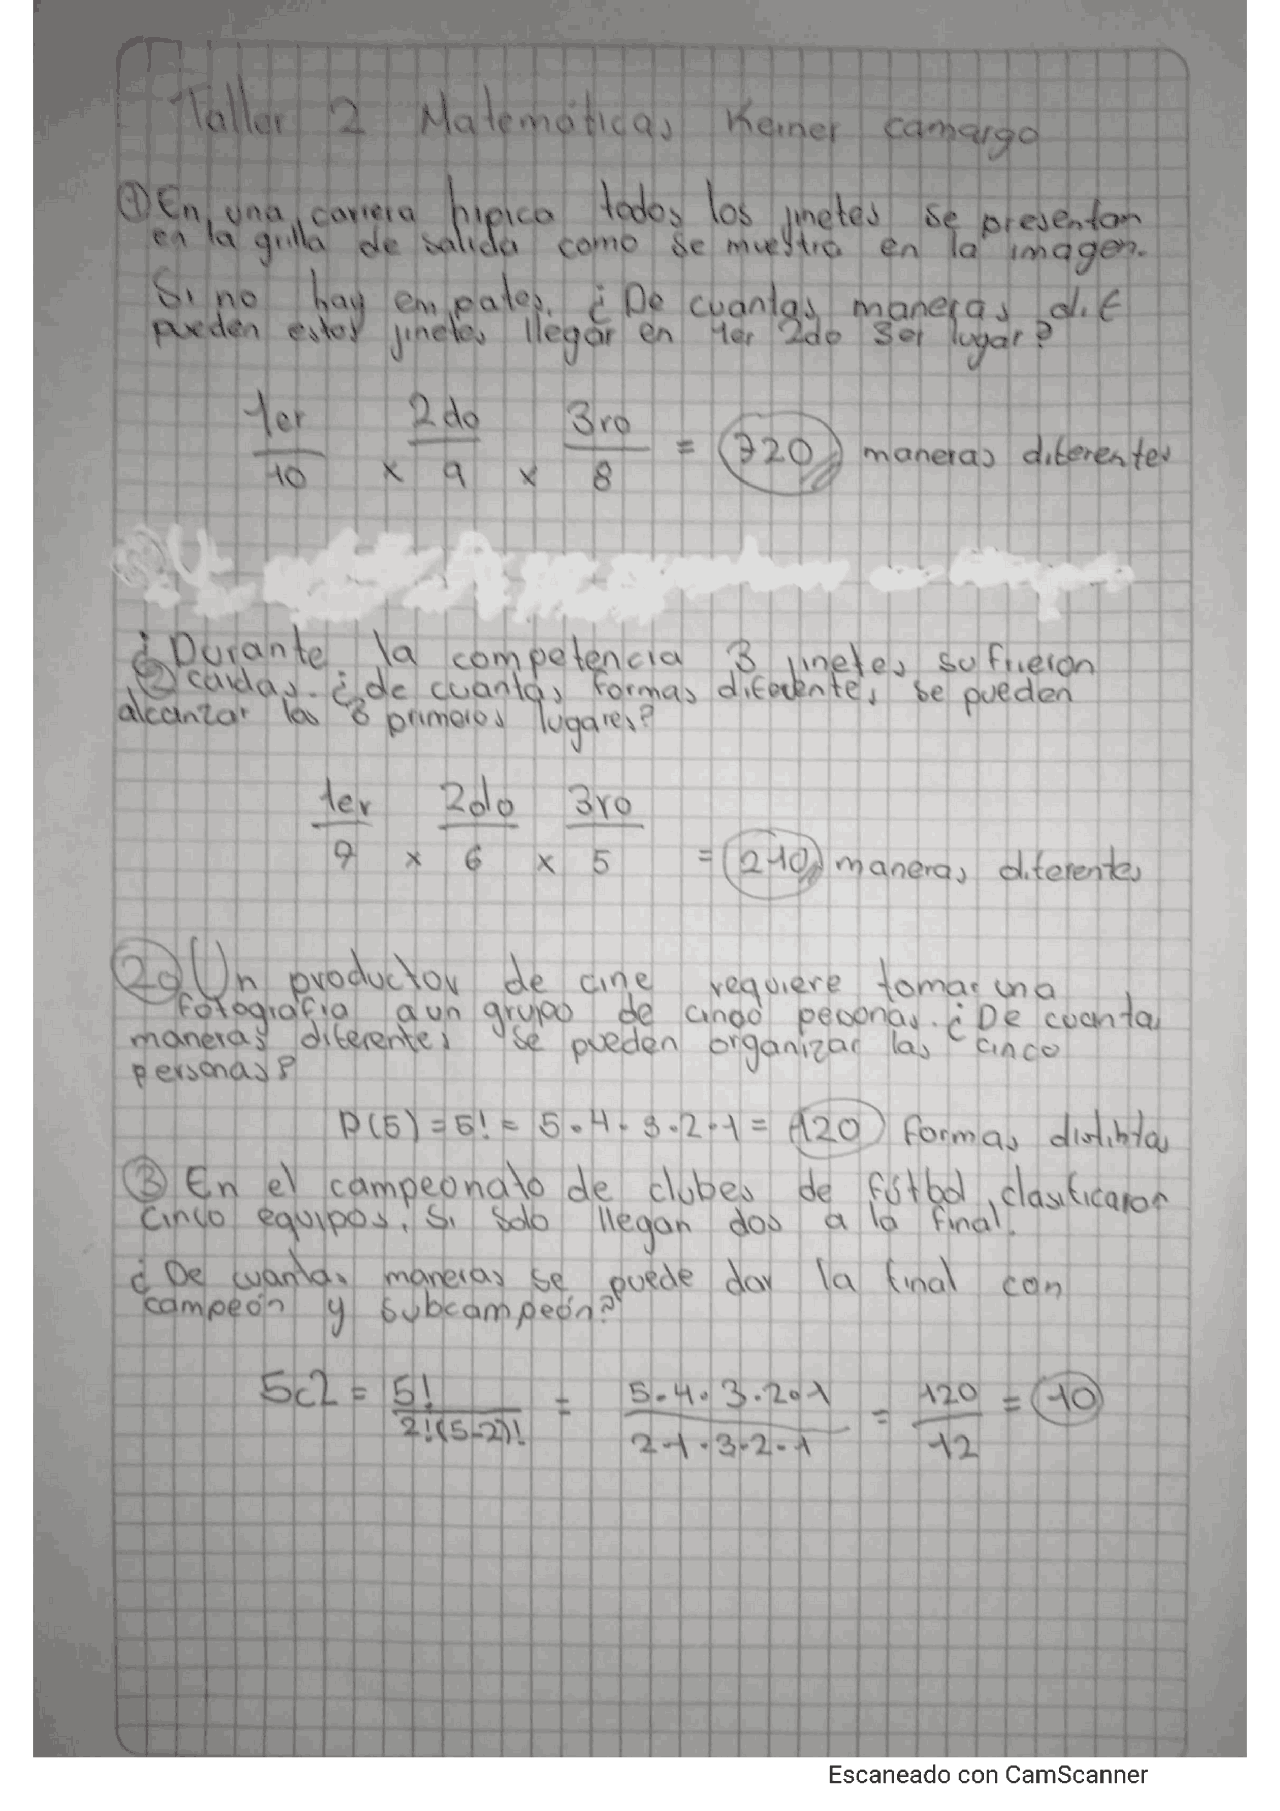 Taller 2 Matemáticas Keiner camargo
① En una carrera hipica todos los jinetes se presentan
en la grilla de salida como se muestra en la imagen.
Si no hay empates. ¿De cuantas maneras dif
pueden estos jinetes llegar en 1er 2do 3er lugar?
1er 2do 3ro
10 x 9 x 8 = 720 maneras diferentes
¿Durante la competencia 3 jinetes sufrieron
② caidas. ¿de cuantas formas diferentes se pueden
alcanzar los 3 primeros lugares?
1er 2do 3ro
7 x 6 x 5 = 210 maneras diferentes
Un productor de cine requiere tomar una
fotografia a un grupo de cinco pesonas. ¿De cuanta
maneras diferentes se pueden organizar las cinco
personas?
P(5) = 5! = 5·4·3·2·1 = 120 formas distintas
③ En el campeonato de clubes de fútbol, clasificaron
cinco equipos. Si solo llegan dos a la final.
¿De cuantas maneras se puede dar la final con
campeón y subcampeón?
5c2 = 5! = 5·4·3·2·1 = 120 = 10
2!(5-2)! 2·1·3·2·1 12
Escaneado con CamScanner